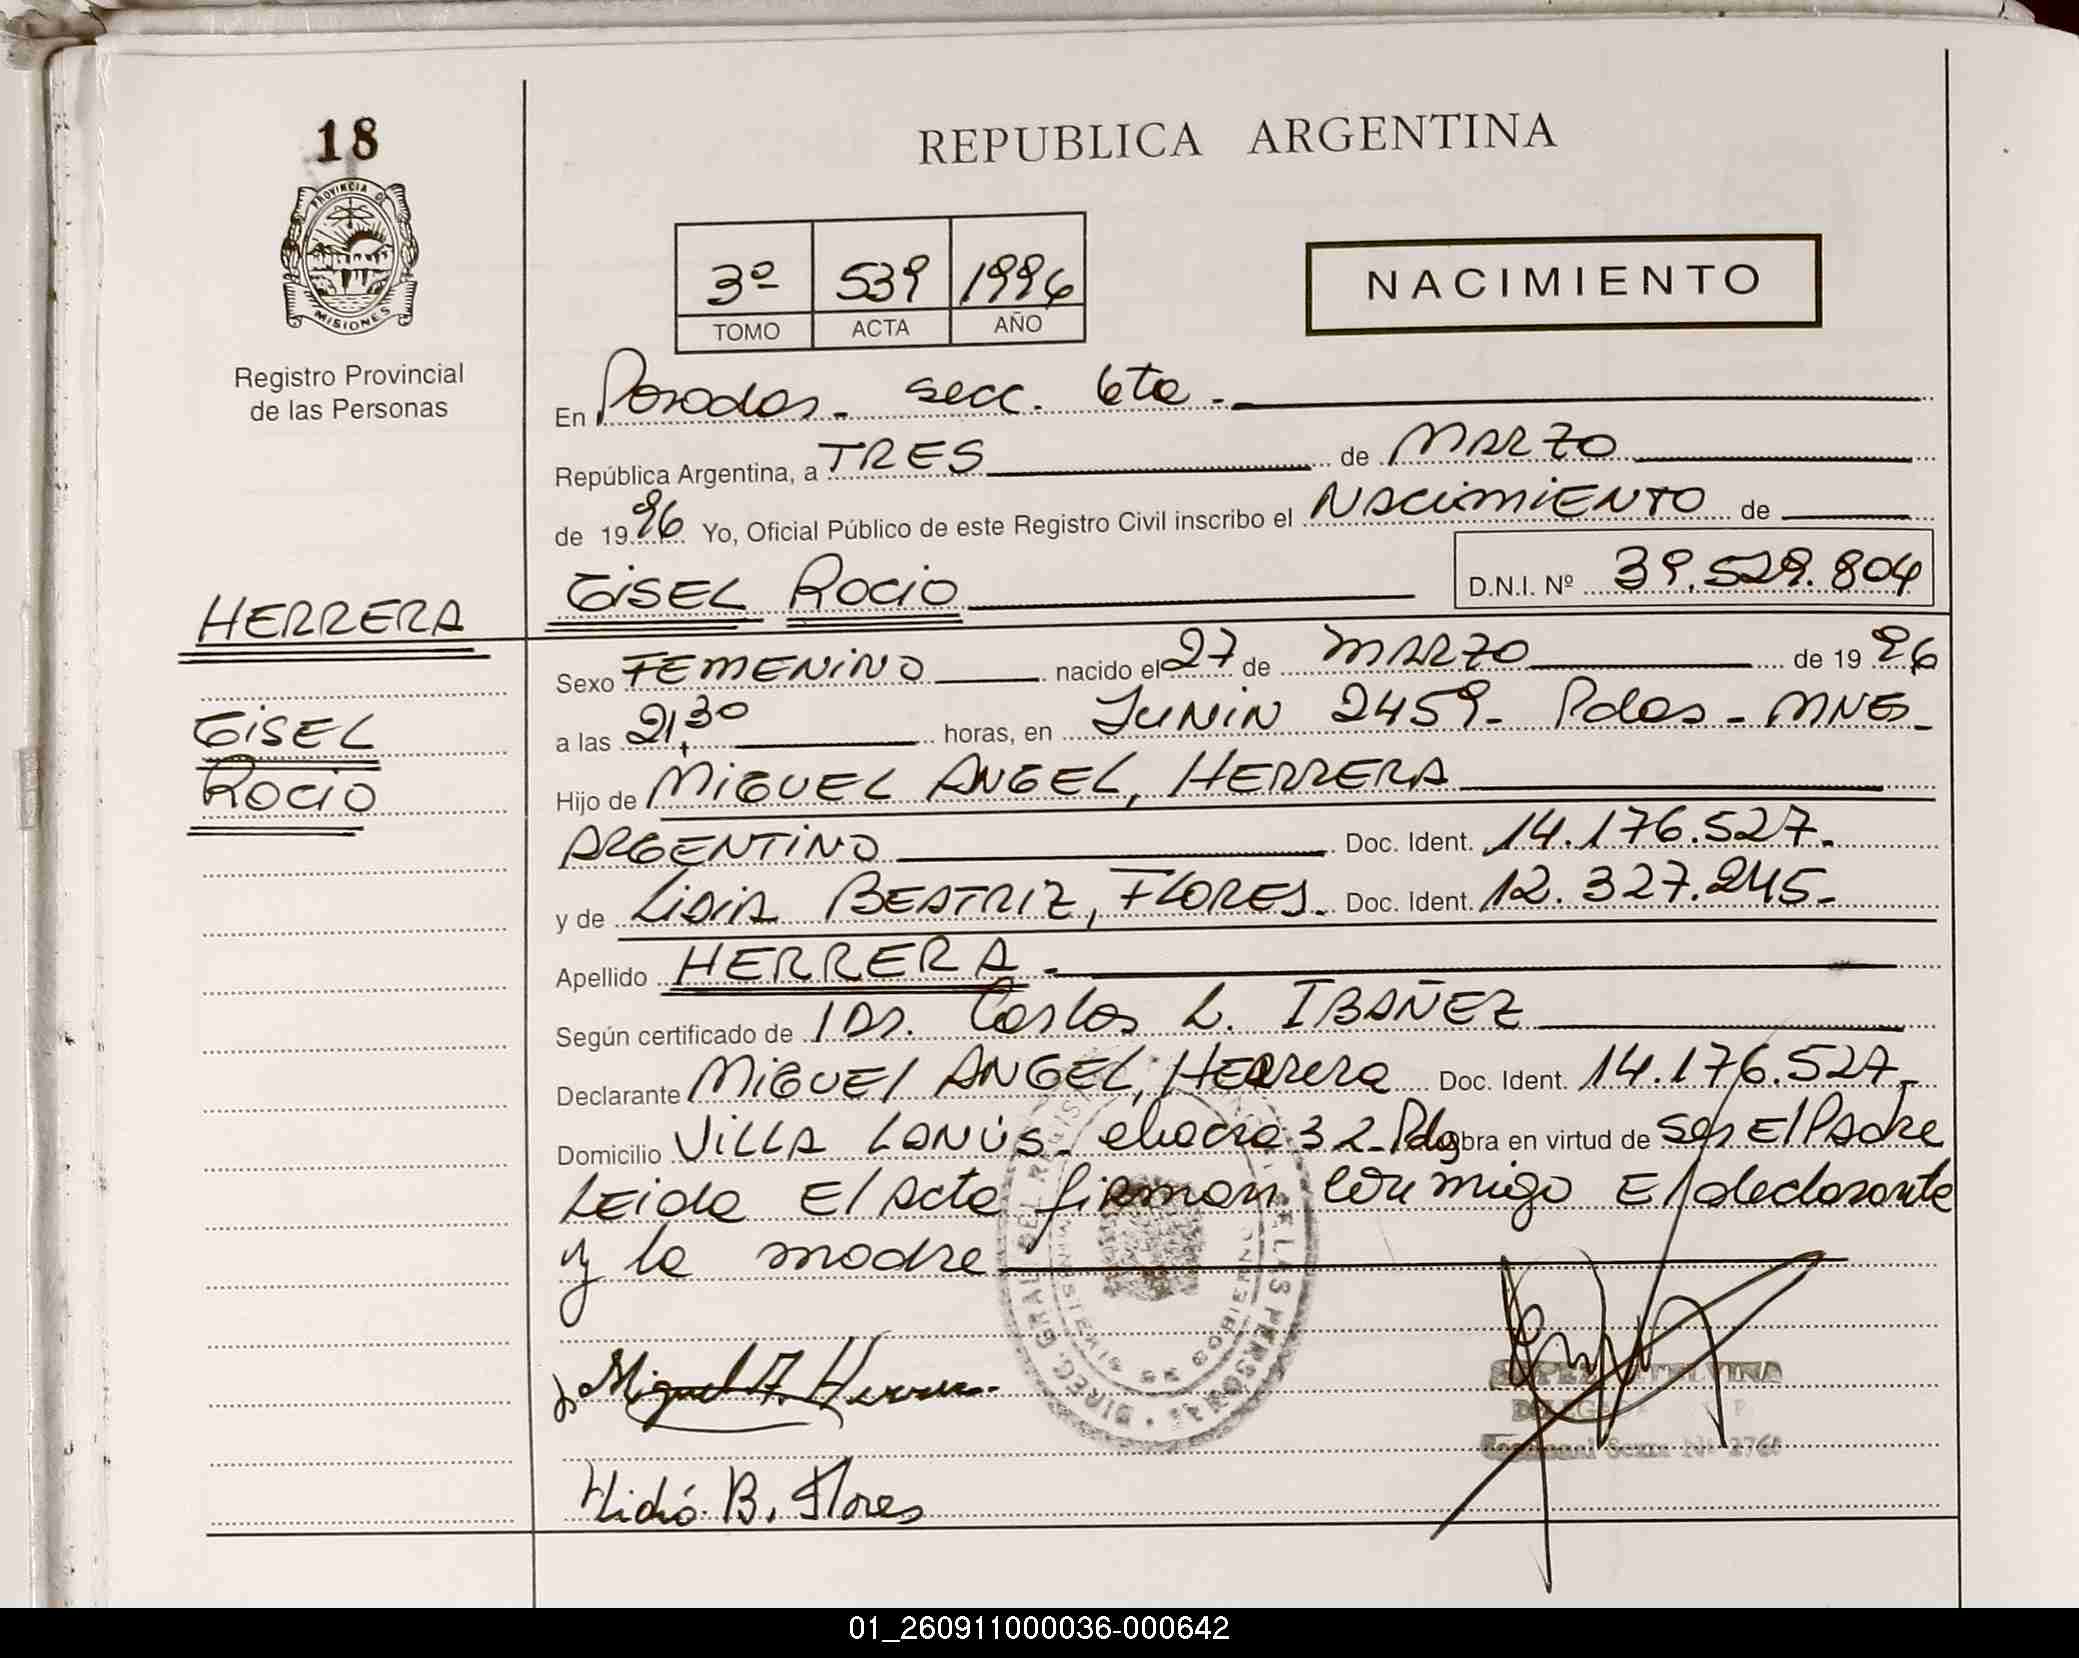 18
PROVINCIA DE
MISIONES
Registro Provincial
de las Personas
REPUBLICA ARGENTINA
3º 539 1996
TOMO ACTA AÑO
NACIMIENTO
En Posadas - secc. 6ta -
República Argentina, a TRES de MARZO
de 19 96 Yo, Oficial Público de este Registro Civil inscribo el NACIMIENTO de
GISEL ROCIO D.N.I. Nº 39.529.804
HERRERA
GISEL
ROCIO
Sexo FEMENINO nacido el 27 de MARZO de 19 96
a las 21,30 horas, en JUNIN 2459 - Pdas - MNES -
Hijo de MIGUEL ANGEL, HERRERA
ARGENTINO Doc. Ident. 14.176.527.-
y de LIDIA BEATRIZ, FLORES - Doc. Ident. 12.327.245 -
Apellido HERRERA -
Según certificado de Dr. Carlos L. IBAÑEZ
Declarante MIGUEL ANGEL, Herrera Doc. Ident. 14.176.527 -
Domicilio VILLA LANÚS - chacra 32 - Pdas obra en virtud de ser El Padre
LEida El Acta firman conmigo El declarante
y la madre
DIREC. GRAL. DEL REGISTRO DE LAS PERSONAS
Miguel A. Herrera
Lidia B. Flores
01_260911000036-000642